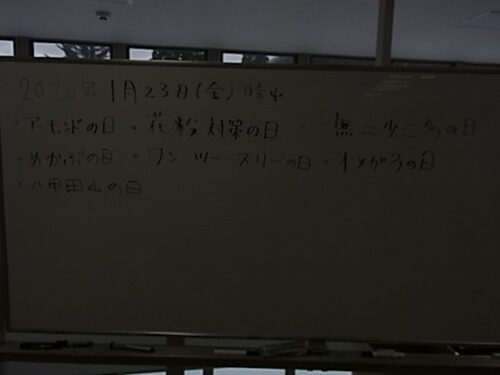 2026年1月23日(金)晴れ
・アーモンドの日 ・花粉対策の日 ・一無二少三多の日
・めかぶの日 ・ワン・ツースリーの日 ・オメガ3の日
・八甲田山の日